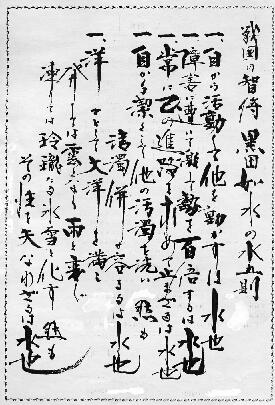 戦国の智将 黒田如水の水五則
一、自から活動して他を動かすは水也
一、障害に遭いて激しく勢を百倍するは水也
一、常に己の進路を求めて止まざるは水也
一、自から潔くして他の汚濁を洗い 然も
清濁併せ容るるは水也
一、洋々として大洋を満し
発しては雲となり 雨と
凍しては玲瓏たる氷雪と化す 然も
その性を失なわざるは水也